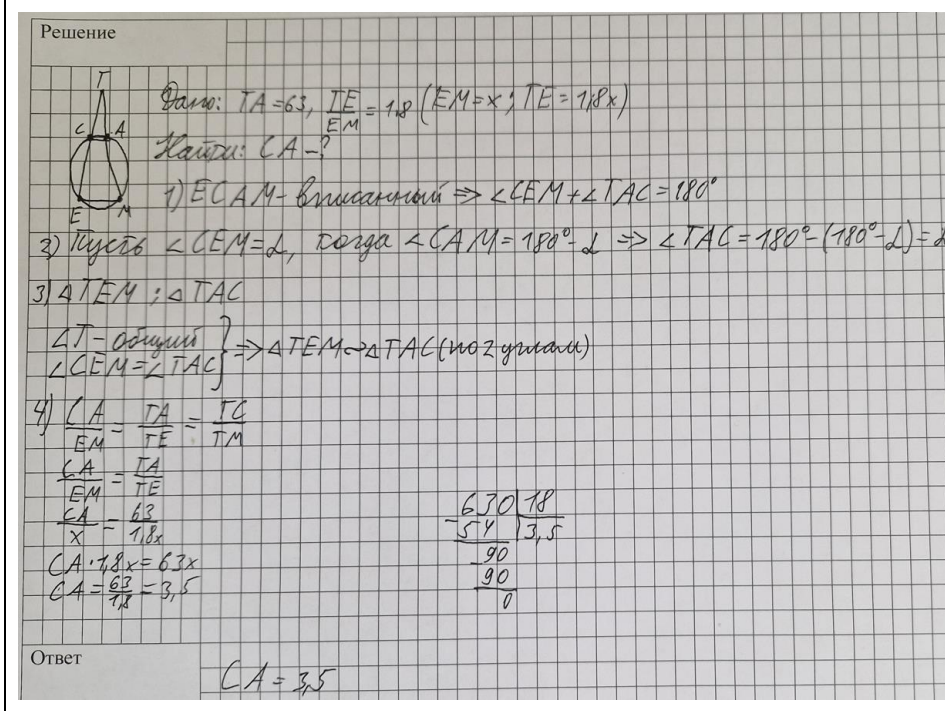 Решение
T
C A
E M
Дано: TA = 63, TE/EM = 1,8 (EM = x; TE = 1,8x)
Найти: CA – ?
1) ECAM – вписанный => ∠CEM + ∠TAC = 180°
2) Пусть ∠CEM = α, тогда ∠CAM = 180° - α => ∠TAC = 180° - (180° - α) = α
3) △TEM ; △TAC
∠T – общий
∠CEM = ∠TAC } => △TEM ~ △TAC (по 2 углам)
4) CA/EM = TA/TE = TC/TM
CA/EM = TA/TE
CA/x = 63/1,8x
CA · 1,8x = 63x
CA = 63/1,8 = 3,5
630 | 18
- 54 | 3,5
90
- 90
0
Ответ
CA = 3,5